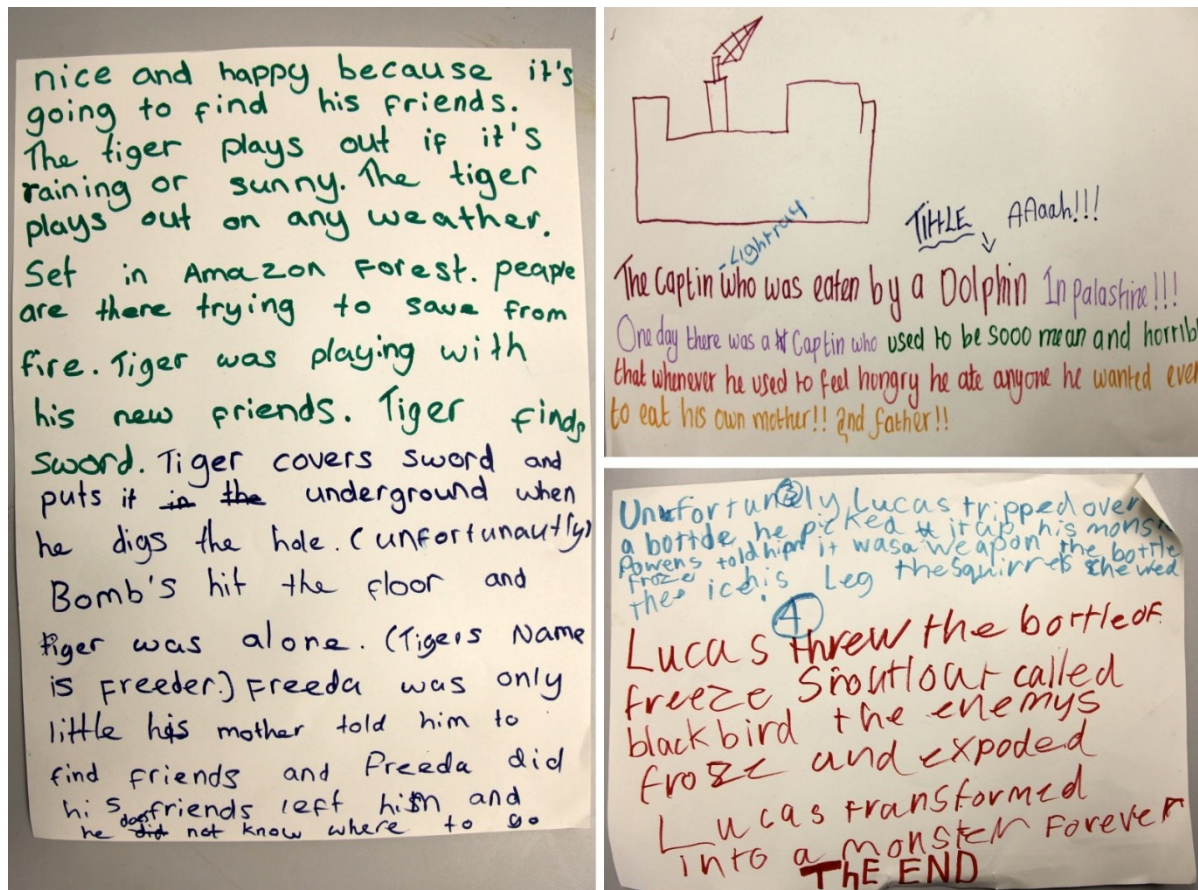 nice and happy because it's
going to find his friends.
The tiger plays out if it's
raining or sunny. The tiger
plays out on any weather.
Set in Amazon Forest. peaple
are there trying to save from
fire. Tiger was playing with
his new friends. Tiger finds
sword. Tiger covers sword and
puts it in the underground when
he digs the hole. (unfortunautly)
Bomb's hit the floor and
tiger was alone. (Tigers Name
is Freeder.) Freeda was only
little his mother told him to
find friends and Freeda did
his friends left him and
he did does not know where to go
TittLE AAaah!!!
-Lightray
The Captin who was eaten by a Dolphin In palastine!!!
One day there was a Captin who used to be sooo mean and horrib
that whenever he used to feel hungry he ate anyone he wanted even
to eat his own mother!! and father!!
3
Unfortunely Lucas tripped over
a bottde he picked it up his mons
Powers told him it was a weapon the bottle
froze his Leg the squirrels chewed
the ice.
4
Lucas threw the bottle of
freeze Snoutlout called
black bird the enemys
froze and expoded
Lucas transformed
into a monster Forever
ThE END